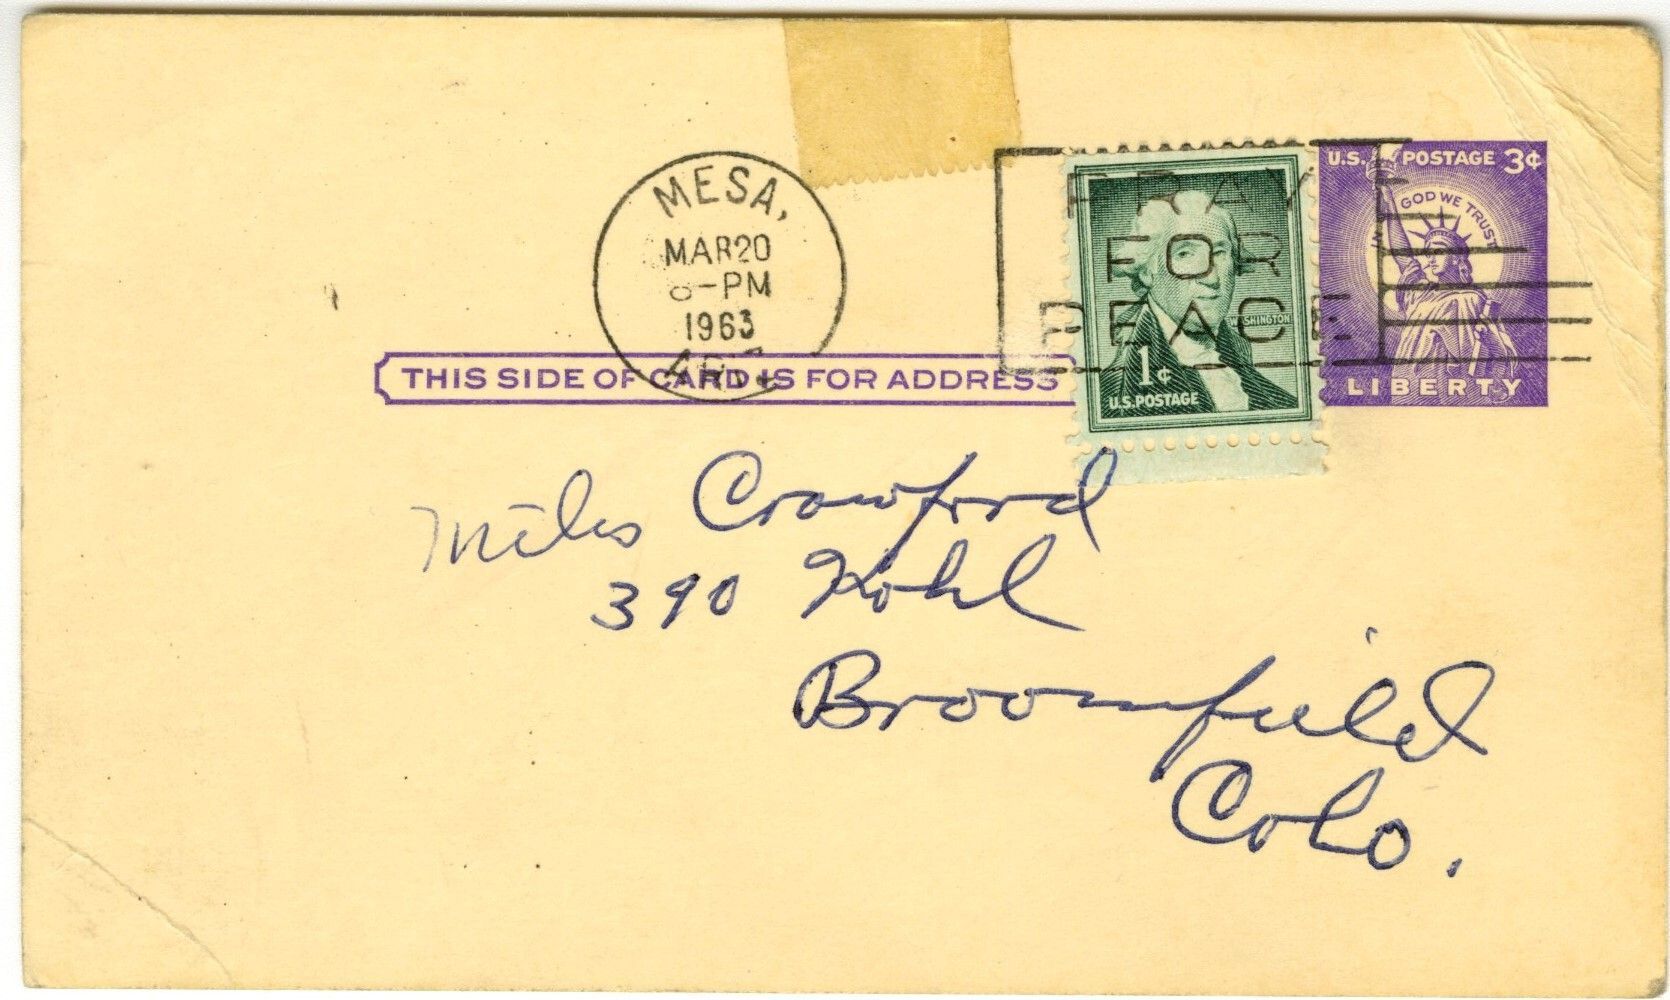 MESA,
MAR 20
-PM
1963
ARIZ
PRAY
FOR
PEACE
WASHINGTON
1¢
U.S. POSTAGE
U.S. POSTAGE 3¢
GOD WE TRUST
LIBERTY
THIS SIDE OF CARD IS FOR ADDRESS
Miles Crawford
390 Kohl
Broomfield
Colo.